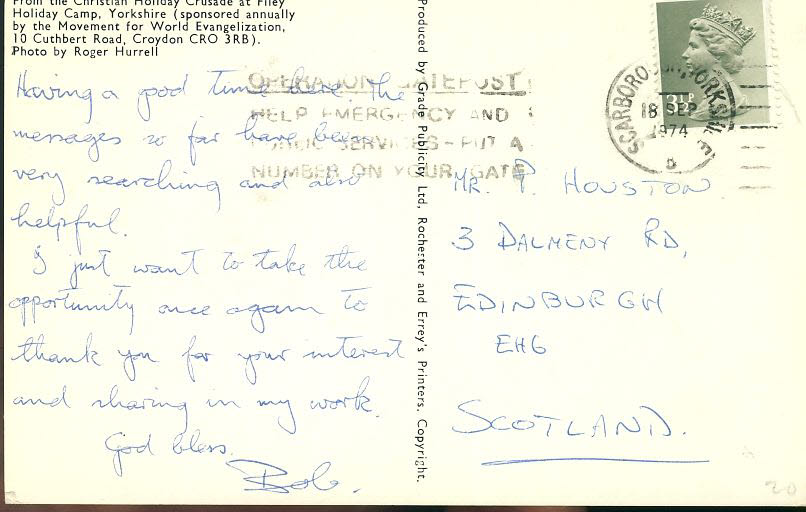 From the Christian Holiday Crusade at Filey
Holiday Camp, Yorkshire (sponsored annually
by the Movement for World Evangelization,
10 Cuthbert Road, Croydon CRO 3RB).
Photo by Roger Hurrell
Having a good time here. The
messages so far have been
very searching and also
helpful.
I just want to take the
opportunity once again to
thank you for your interest
and sharing in my work.
God bless.
Bob.
Produced by Grade Publicity Ltd. Rochester and Errey's Printers. Copyright.
OPERATION GATEPOST
HELP EMERGENCY AND
PUBLIC SERVICES-PUT A
NUMBER ON YOUR GATE
SCARBOROUGH, YORKSHIRE
18 SEP
1974
3½P
MR. P. HOUSTON
3 DALMENY RD,
EDINBURGH
EH6
SCOTLAND.
20